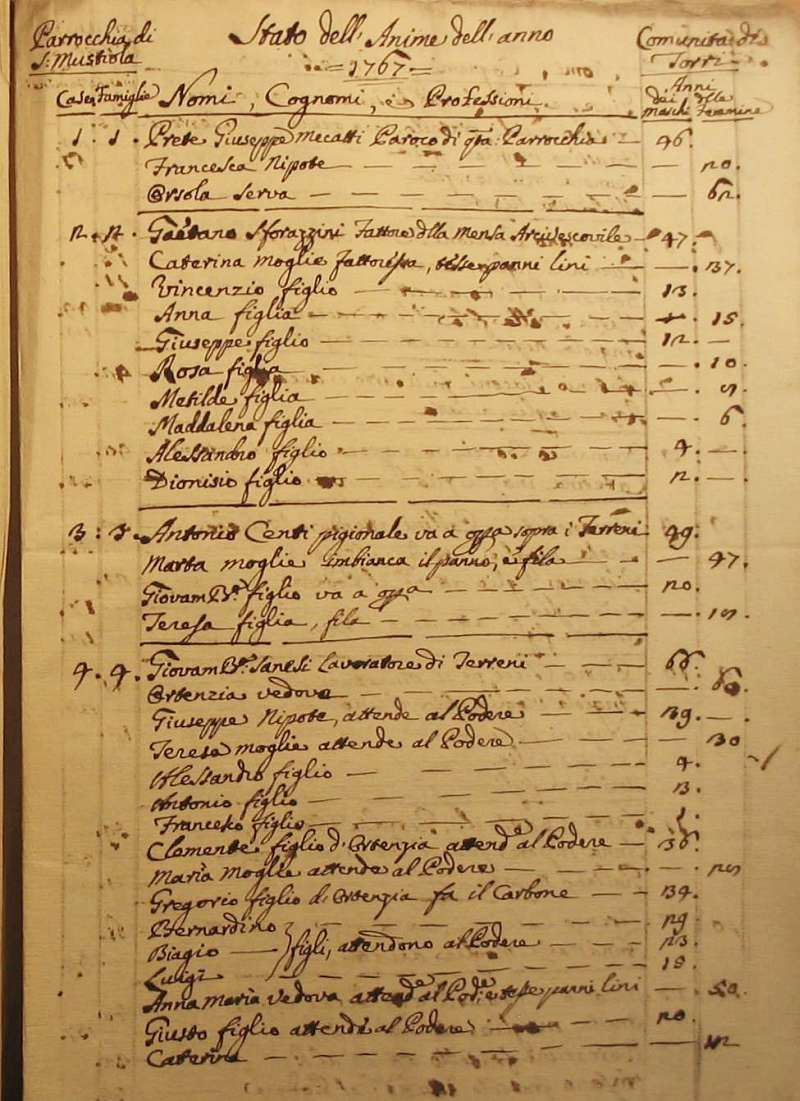 Parrocchia di
S: Mustiola
Stato dell' Anime dell' anno
1767
Comunità di
Torri
Case Famiglie Nomi, Cognomi, e Professioni
Anni
dei Maschi delle Femmine
1 : 1. Prete Giuseppe Mecatti Paroco di qta Parrocchia 46.
Francesca Nipote 20.
Orsola serva 62.
2. 2. Gaetano Sforazzini Fattore dlla Mensa Arcivescovile 47.
Caterina moglie Fattoressa, tesse panni lini 37.
Vincenzio figlio 13.
Anna figlia 15.
Giuseppe figlio 12.
Rosa figlia 10
Metilde figlia
Maddalena figlia 6
Alessandro figlio 4.
Dionisio figlio 2.
3 : 3. Antonio Centi pigionale va a opra sopra i Terreni 49.
Marta moglie imbianca il panno, e fila 47.
Giovam Bta. figlio va a opra 20.
Teresa figlia, fila
4. 4. Giovam Bta. Sanesi Lavoratore di Terreni 66.
Ortenzia vedova 60.
Giuseppe Nipote, attende al Podere 39.
Teresa moglie attende al Podere 30
Alessandro figlio 4.
Antonio figlio
Francesco figlio 1.
Clemente figlio d'Ortenzia attende al Podere 36.
Maria moglie attende al Podere
Gregorio figlio d'Ortenzia fa il Carbone 34.
Bernardino 29.
Biagio figli, attendono al Podere 23.
Luigi 18.
Anna Maria vedova attende al Pode e tesse panni lini 50.
Giusto figlio attende al Podere 20.
Caterina